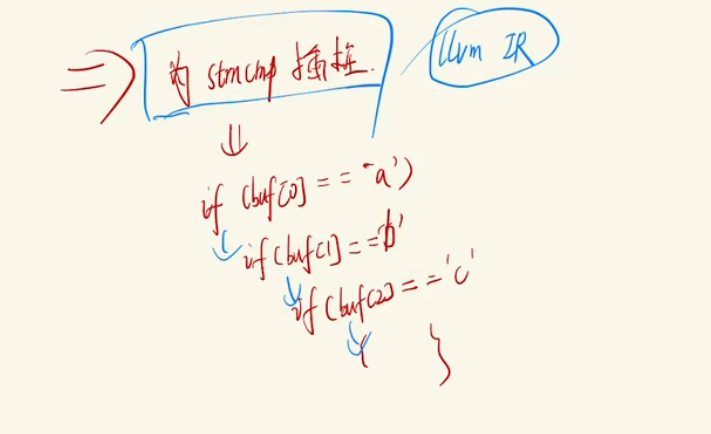 ⇒ 为 strncmp 插桩.
llvm IR
⇓
if (buf[0] == 'a')
if (buf[1] == 'b'
if (buf[2] == 'c'
{ }